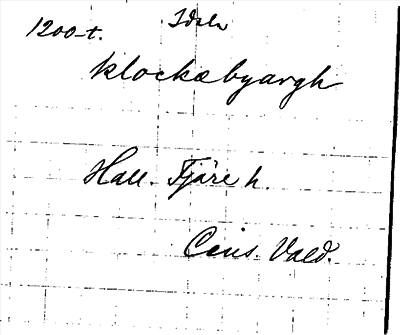 1200-t. Idala
klockæbyargh
Hall. Fjäre h.
Cens. Vald.